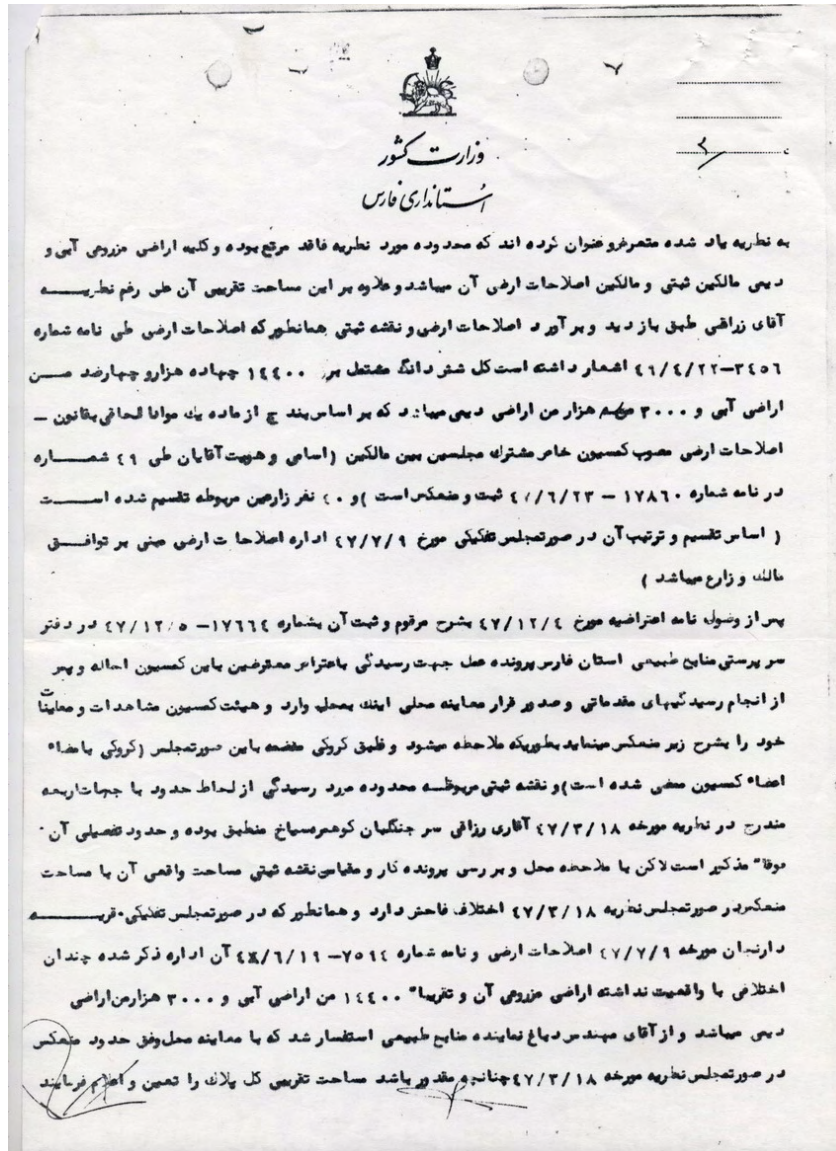 ۲/
وزارت کشور
استانداری فارس
به نظریه یاد شده متعرض و عنوان کرده اند که محدوده مورد نظریه فاقد مرتع بوده و کلیه اراضی مزروعی آبی و
دیمی مالکین ثبتی و مالکین اصلاحات ارضی آن میباشد و علاوه بر این مساحت تقریبی آن علی رغم نظریه
آقای زراقی طبق بازدید و برآورد اصلاحات ارضی و نقشه ثبتی همانطور که اصلاحات ارضی طی نامه شماره
۳۴۵۶-۴۶/۴/۲۲ اشعار داشته است کل شش دانگ مشتمل بر ۱۴۴۰۰ چهاده هزار و چهارصد من
اراضی آبی و ۳۰۰۰ هزار من اراضی دیمی میباشد که بر اساس بند ج از ماده یک مواد الحاقی بقانون -
اصلاحات ارضی مصوب کمسیون خاص مشترک مجلسین بین مالکین (اسامی و هویت آقایان طی ۴۹ شماره
در نامه شماره ۱۷۸۶۰ - ۶/۲۳/ ثبت و منعکس است ) و ۴۰ نفر زارعین مربوطه تقسیم شده است
( اساس تقسیم و ترتیب آن در صورتمجلس تفکیکی مورخ ۴۷/۷/۹ اداره اصلاحات ارضی مبنی بر توافق
مالک و زارع میباشد )
پس از وصول نامه اعتراضیه مورخ ۴۷/۱۲/۴ بشرح مرقوم و ثبت آن بشماره ۱۷۶۶۴-۴۷/۱۲/۵ در دفتر
سرپرستی منابع طبیعی استان فارس پرونده عمل جهت رسیدگی باعتراض معترضین باین کمسیون احاله و پس
از انجام رسیدگیهای مقدماتی و صدور قرار معاینه محلی اینک بمحل وارد و هیئت کمسیون مشاهدات و معاینات
خود را بشرح زیر منعکس مینماید بطوریکه ملاحظه میشود و طبق کروکی منضمه باین صورتمجلس (کروکی بامضاء
اعضاء کمسیون ممضی شده است) و نقشه ثبتی مربوطه محدوده مورد رسیدگی از لحاظ حدود با جهات اربعه
مندرج در نظریه مورخه ۴۷/۳/۱۸ آقای رزاقی سر جنگلبان کوهمره سیاخ منطبق بوده و حدود تفصیلی آن
فوقا" مذکور است لاکن با ملاحظه محل و بررسی پرونده کار و مقیاس نقشه ثبتی مساحت واقعی آن با مساحت
منعکس در صورتمجلس نظریه ۴۷/۳/۱۸ اختلاف فاحش دارد و همانطور که در صورتمجلس تفکیکی قریه
دارنجان مورخه ۴۷/۷/۹ اصلاحات ارضی و نامه شماره ۷۵۹۴-۶/۱۹/ آن اداره ذکر شده چندان
اختلافی با واقعیت نداشته اراضی مزروعی آن و تقریبا" ۱۴۴۰۰ من اراضی آبی و ۳۰۰۰ هزار من اراضی
دیمی میباشد و از آقای مهندس دباغ نماینده منابع طبیعی استفسار شد که با معاینه محل وفق حدود منعکس
در صورتمجلس نظریه مورخه ۴۷/۳/۱۸ چنانچه مقدور باشد مساحت تقریبی کل پلاک را تعیین و اعلام فرمایند